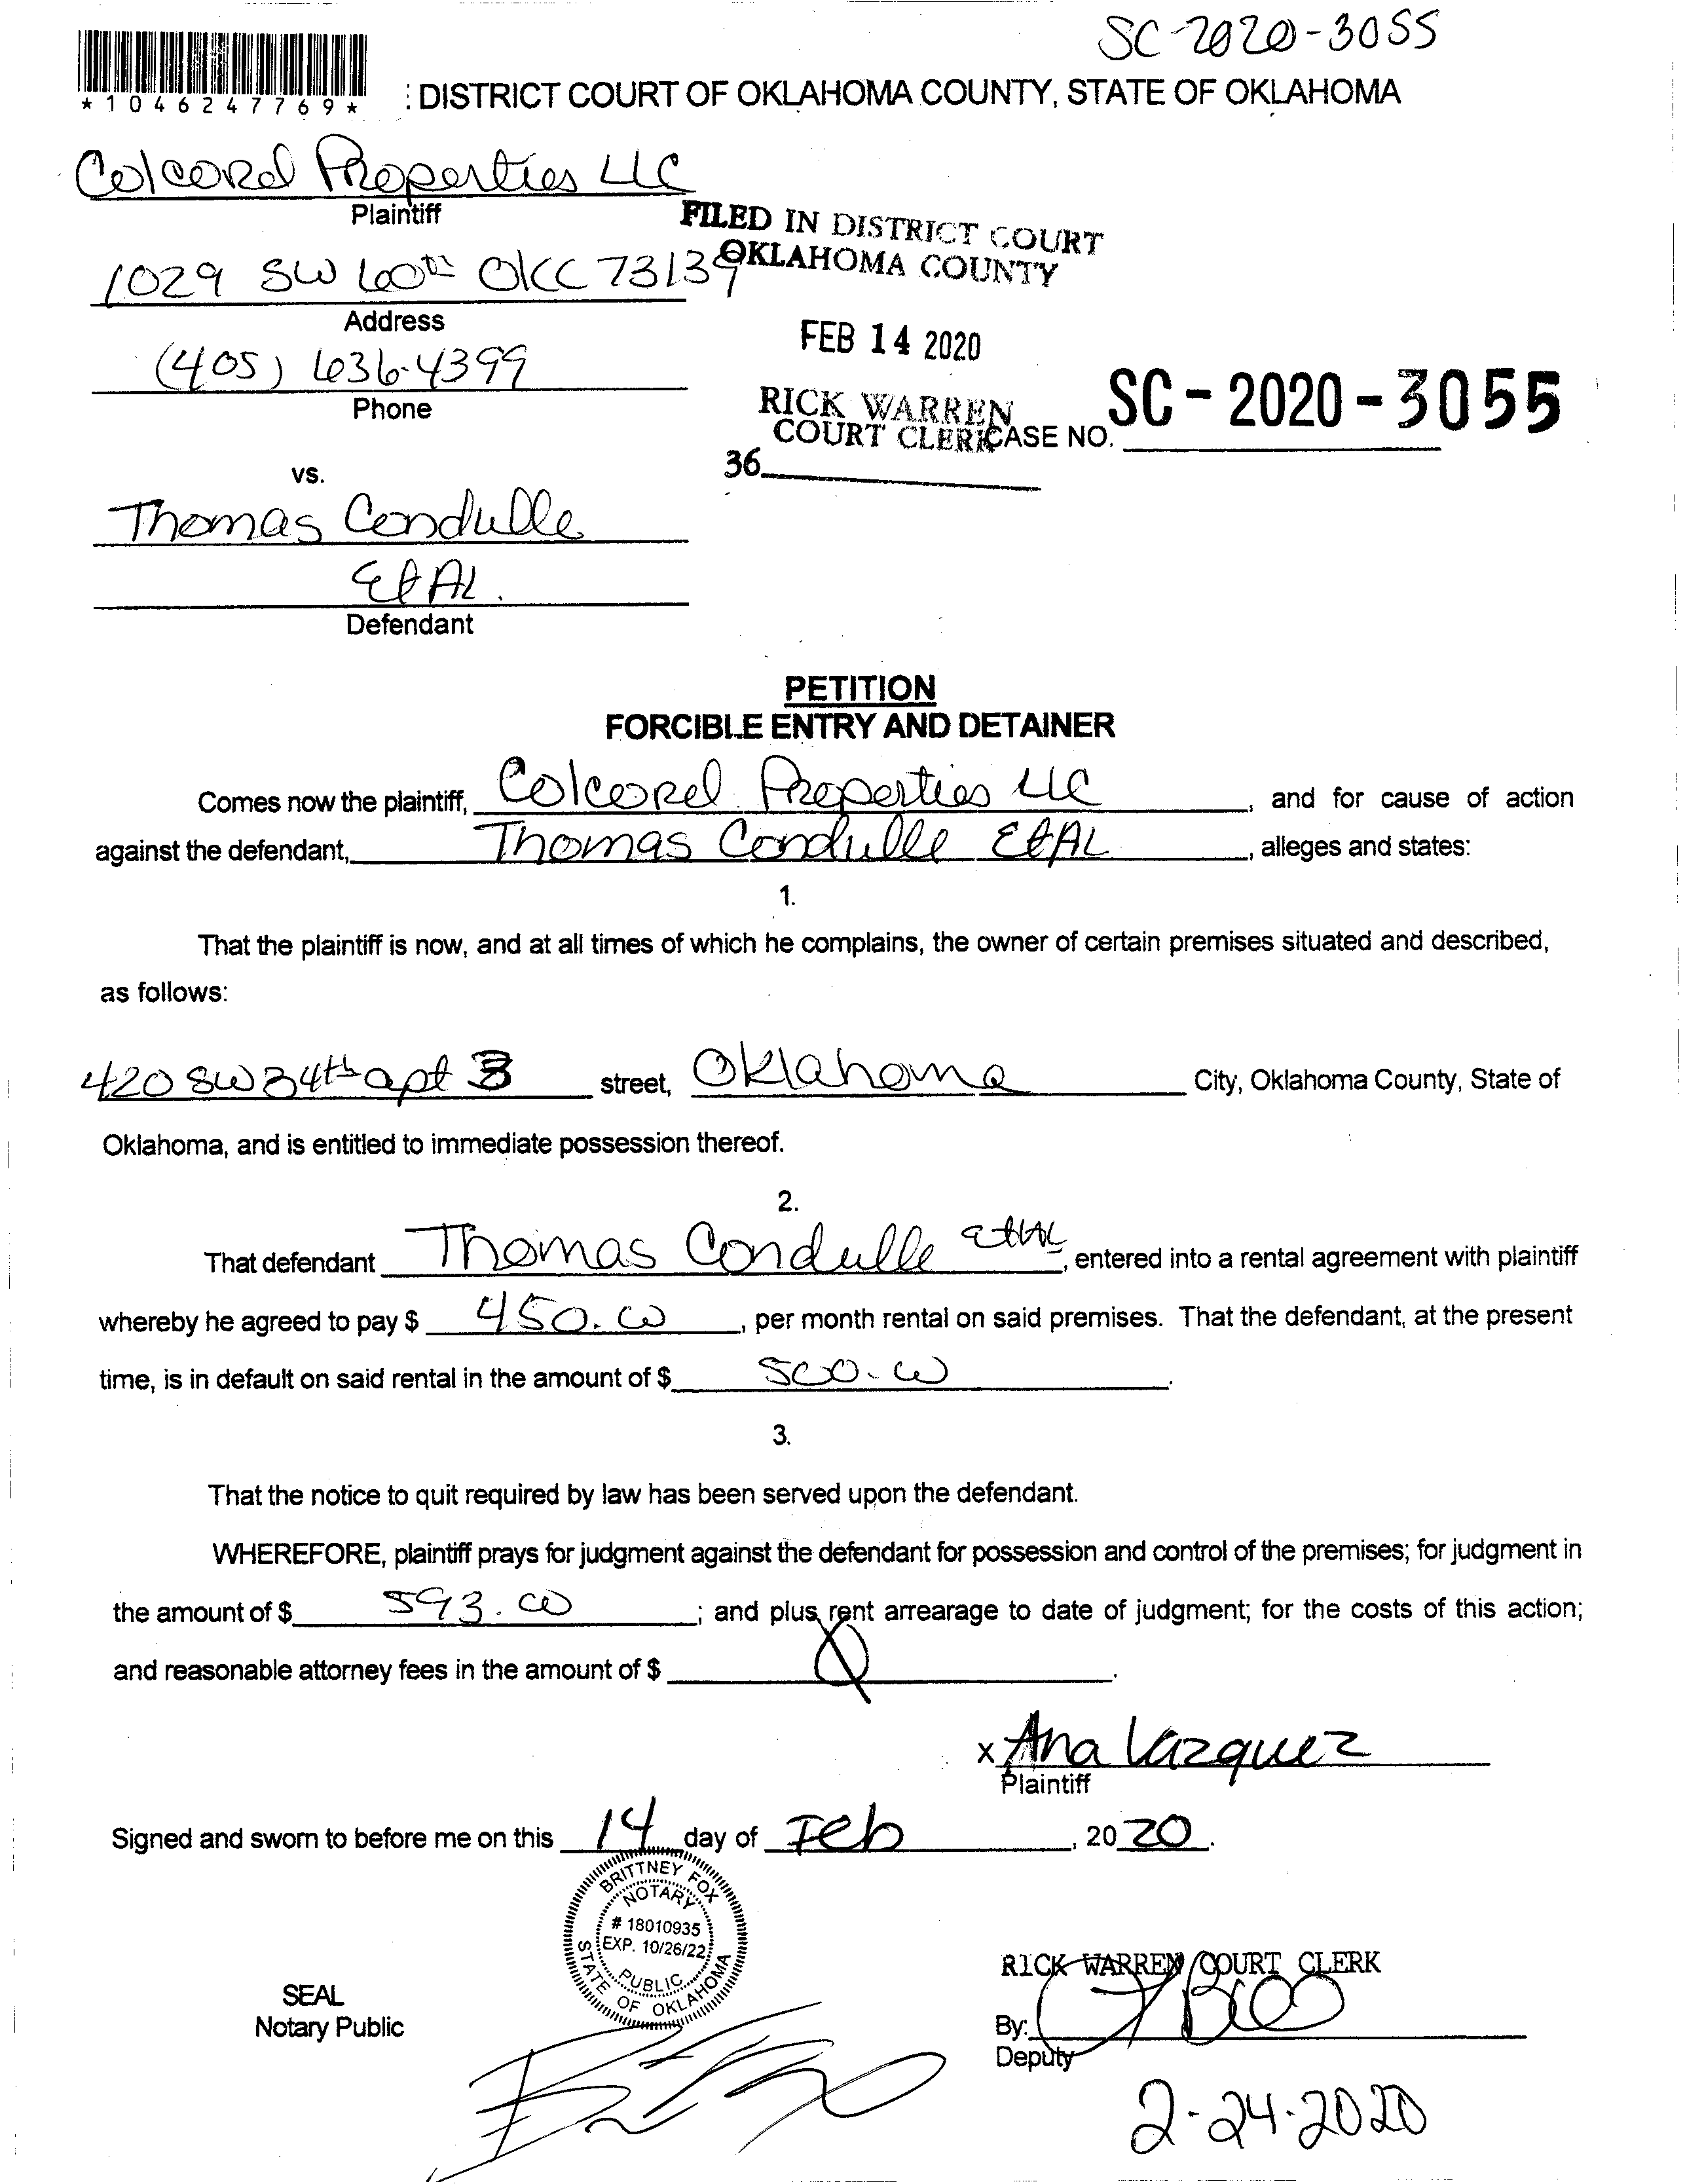 SC-2020-3055
*1046247769*
: DISTRICT COURT OF OKLAHOMA COUNTY, STATE OF OKLAHOMA
Colcord Properties LLC
Plaintiff
FILED IN DISTRICT COURT
OKLAHOMA COUNTY
1029 SW 60th OKC 73139
Address
FEB 14 2020
(405) 636-4399
Phone
RICK WARREN
COURT CLERK
CASE NO. SC-2020-3055
36
vs.
Thomas Condulle
Et AL.
Defendant
PETITION
FORCIBLE ENTRY AND DETAINER
Comes now the plaintiff, Colcord Properties LLC, and for cause of action
against the defendant, Thomas Condulle Et AL, alleges and states:
1.
That the plaintiff is now, and at all times of which he complains, the owner of certain premises situated and described,
as follows:
420 SW 34th apt 3 street, Oklahoma City, Oklahoma County, State of
Oklahoma, and is entitled to immediate possession thereof.
2.
That defendant Thomas Condulle Et AL, entered into a rental agreement with plaintiff
whereby he agreed to pay $ 450.00, per month rental on said premises. That the defendant, at the present
time, is in default on said rental in the amount of $ 500.00.
3.
That the notice to quit required by law has been served upon the defendant.
WHEREFORE, plaintiff prays for judgment against the defendant for possession and control of the premises; for judgment in
the amount of $ 593.00; and plus rent arrearage to date of judgment; for the costs of this action;
and reasonable attorney fees in the amount of $ 0.
x Ana Vazquez
Plaintiff
Signed and sworn to before me on this 14 day of Feb, 2020.
BRITTNEY FOX
NOTARY
# 18010935
EXP. 10/26/22
PUBLIC
STATE OF OKLAHOMA
SEAL
Notary Public
RICK WARREN COURT CLERK
By:
Deputy
2-24-2020